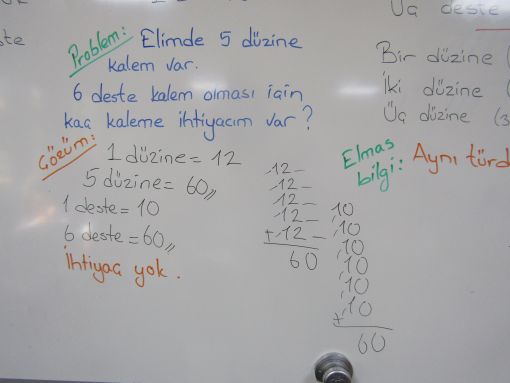 Problem: Elimde 5 düzine
kalem var.
6 deste kalem olması için
kaç kaleme ihtiyacım var?
Çözüm:
1 düzine = 12
5 düzine = 60,,
1 deste = 10
6 deste = 60,,
İhtiyaç yok.
12
12
12
12
+ 12
60
10
10
10
10
10
+ 10
60
Üç deste
Bir düzine (
İki düzine (
Üç düzine (3
Elmas
bilgi: Aynı türd